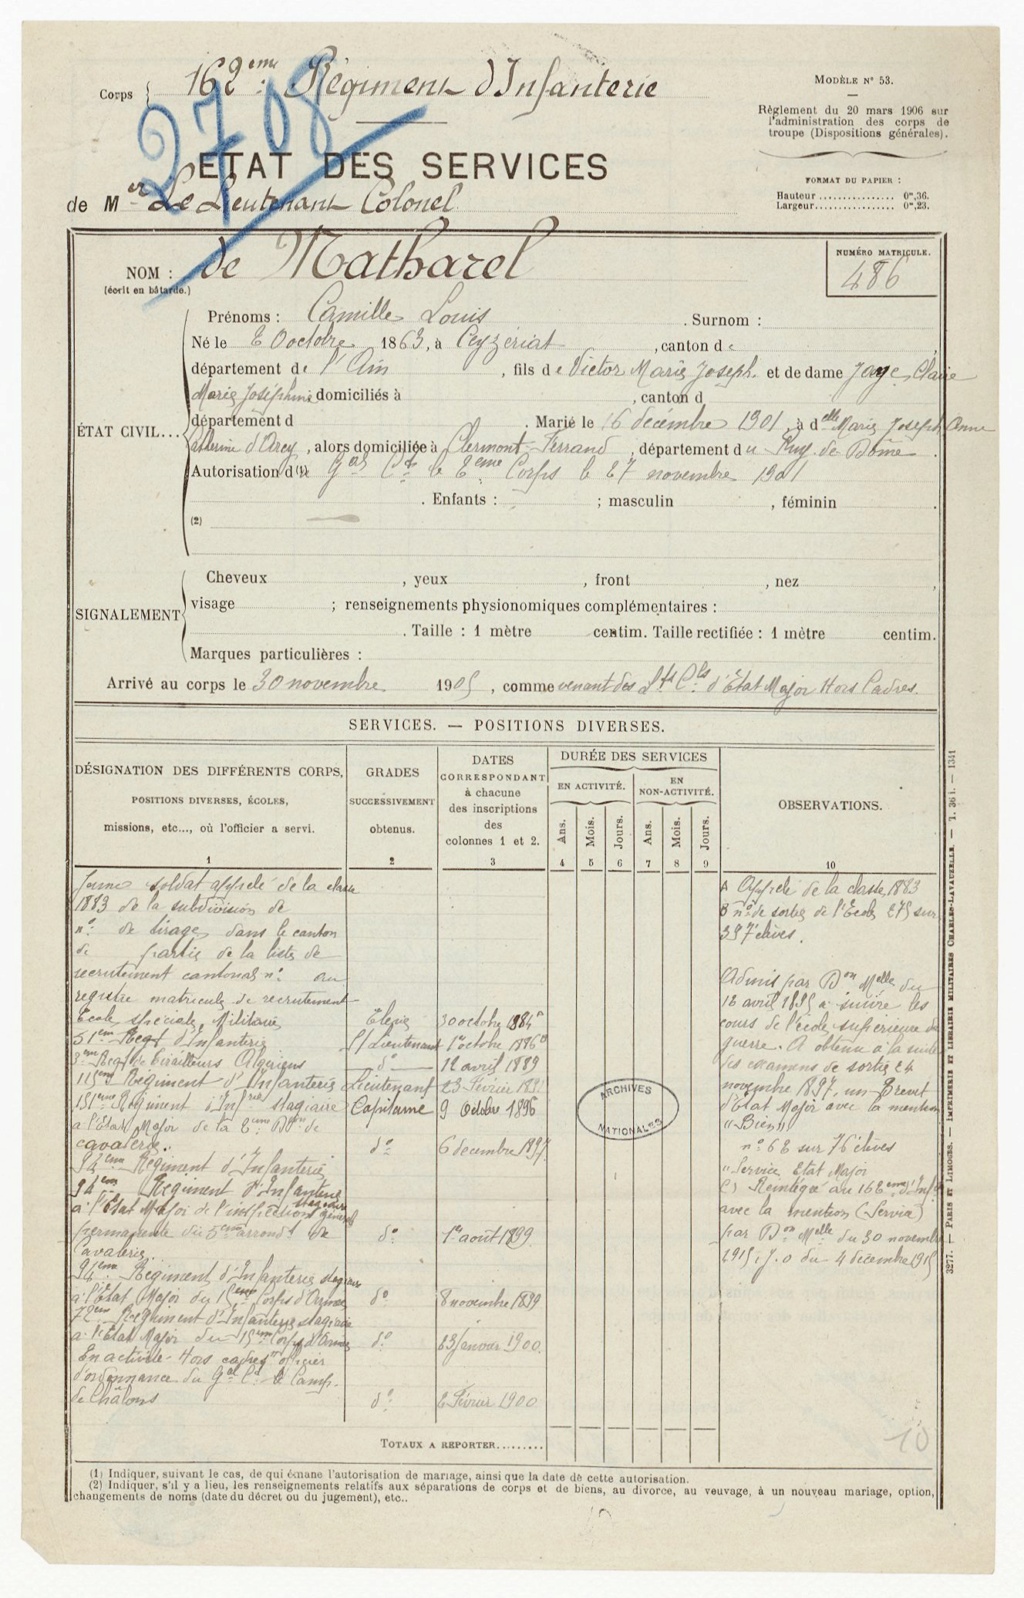 Corps { 162ème Régiment d'Infanterie
2708
MODÈLE N° 53.
Règlement du 20 mars 1906 sur
l'administration des corps de
troupe (Dispositions générales).
FORMAT DU PAPIER :
Hauteur ............... 0m,36.
Largeur................ 0m,23.
ÉTAT DES SERVICES
de Mer Le Lieutenant Colonel
NOM : de Matharel
(écrit en bâtarde.)
NUMÉRO MATRICULE.
486
Prénoms : Camille Louis . Surnom :
Né le 20 octobre 1863, à Ceyzériat , canton de
département de l'Ain , fils de Victor Marie Joseph et de dame Jaye Claire
Marie Joséphine domiciliés à , canton d
département d . Marié le 16 décembre 1901, à delle Marie Joseph Anne
ÉTAT CIVIL...
Catherine d'Arcy , alors domiciliée à Clermont-Ferrand , département du Puy de Dôme .
Autorisation d(1) Gal Ct le 2eme Corps le 27 novembre 1901
. Enfants : ; masculin , féminin
(2) —
Cheveux , yeux , front , nez ,
SIGNALEMENT
visage ; renseignements physionomiques complémentaires :
. Taille : 1 mètre centim. Taille rectifiée : 1 mètre centim.
Marques particulières :
Arrivé au corps le 30 novembre 1905 , comme venant des d'État Major Hors Cadres.
SERVICES. — POSITIONS DIVERSES.
DÉSIGNATION DES DIFFÉRENTS CORPS,
POSITIONS DIVERSES, ÉCOLES,
missions, etc..., où l'officier a servi.
1
GRADES
SUCCESSIVEMENT
obtenus.
2
DATES
CORRESPONDANT
à chacune
des inscriptions
des
colonnes 1 et 2.
3
DURÉE DES SERVICES
EN ACTIVITÉ.
EN
NON-ACTIVITÉ.
Ans. Mois. Jours. Ans. Mois. Jours.
4 5 6 7 8 9
OBSERVATIONS.
10
Jeune soldat appelé de la classe
1883 de la subdivision de
n° de tirage dans le canton
de partie de la liste de
recrutement cantonal n° au
registre matricule de recrutement
École spéciale Militaire Élève 30 octobre 1884
51eme Regt d'Infanterie S/Lieutenant 1er octobre 1886
3eme Regt de tirailleurs Algériens do 12 avril 1889
115eme Régiment d'Infanterie Lieutenant 23 Février 189
151eme Régiment d'Infrie stagiaire Capitaine 9 Octobre 1896
à l'État Major de la 2eme Don de
cavalerie.
94eme Régiment d'Infanterie do 6 décembre 1897
94eme Régiment d'Infanterie stagiaire
à l'État Major de l'inspection générale
permanente du 5eme arrondt de do 1er août 1899
Cavalerie.
94eme Régiment d'Infanterie stagiaire
à l'État Major du 15eme Corps d'Armée do 8 novembre 1899
72eme Régiment d'Infanterie stagiaire
à l'État Major du 15eme Corps d'Armée do 23 janvier 1900
En activité Hors cadres officier
d'ordonnance du Gal Ct le Camp
de Châlons do 2 Février 1900
A Appelé de la classe 1883
B n° de sortie de l'École 275 sur
397 élèves.
Admis par Don Melle du
12 avril 1895 à suivre les
cours de l'école supérieure de
guerre. A obtenu à la suite
des examens de sortie 24
novembre 1897, un Brevet
d'État Major avec la mention
"Bien"
n° 62 sur 76 élèves
"Service État Major
C) Réintégré au 162eme d'Inf
avec la mention (Servia)
par Don Melle du 30 novembre
1915. J.O du 4 décembre 1915
ARCHIVES
NATIONALES
TOTAUX A REPORTER.........
10
(1) Indiquer, suivant le cas, de qui émane l'autorisation de mariage, ainsi que la date de cette autorisation.
(2) Indiquer, s'il y a lieu, les renseignements relatifs aux séparations de corps et de biens, au divorce, au veuvage, à un nouveau mariage, option,
changements de noms (date du décret ou du jugement), etc..
3277. — PARIS ET LIMOGES. — IMPRIMERIE ET LIBRAIRIE MILITAIRES CHARLES-LAVAUZELLE. — T. 36 i. — 1341